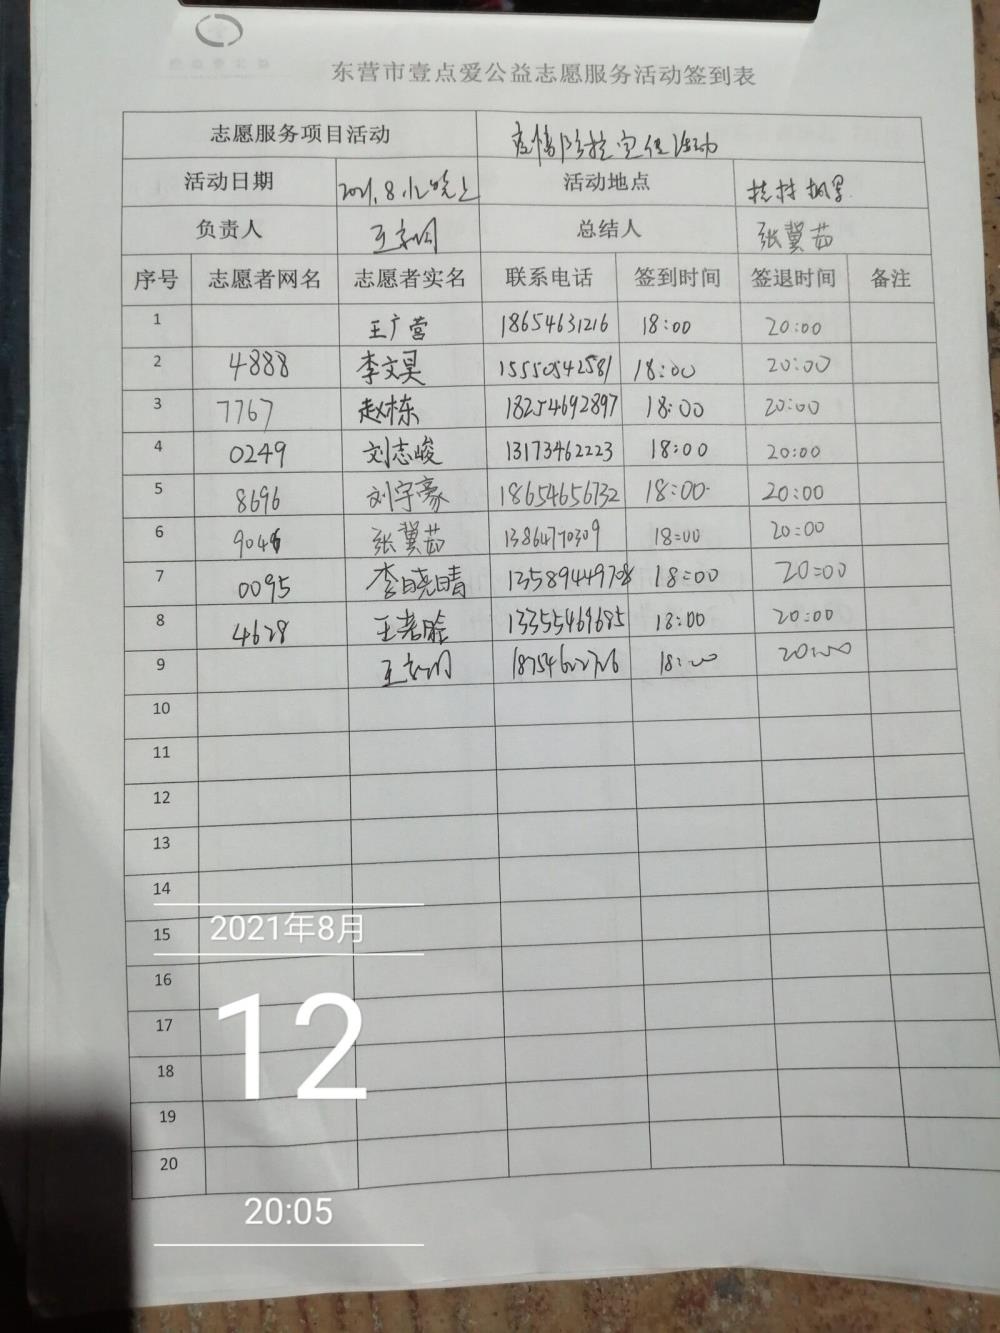 东营市壹点爱公益志愿服务活动签到表
志愿服务项目活动 疫情防控宣传活动
活动日期 2021.8.12晚上 活动地点
负责人 总结人 张冀茹
序号 志愿者网名 志愿者实名 联系电话 签到时间 签退时间 备注
1 王广营 18654631216 18:00 20:00
2 4888 李文昊 15550542581 18:00 20:00
3 7767 赵栋 18254692897 18:00 20:00
4 0249 刘志峻 13173462223 18:00 20:00
5 8696 刘宇豪 18654656732 18:00 20:00
6 张冀茹 13864770309 18:00 20:00
7 0095 李晓晴 18:00 20:00
8 4628 13355469685 18:00 20:00
9 18:00 20:00
10
11
12
13
14
15
16
17
18
19
20
2021年8月
12
20:05